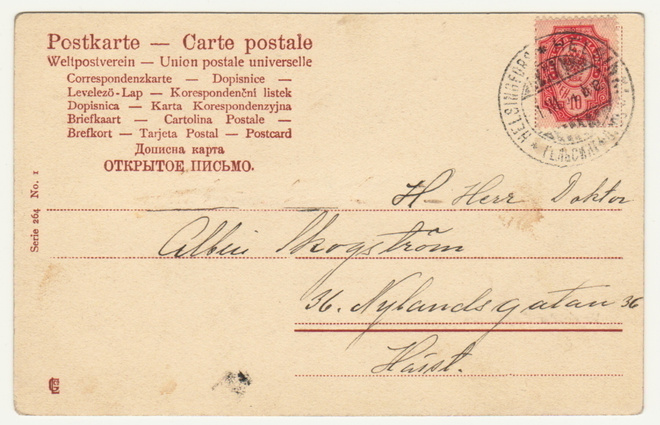 Postkarte — Carte postale
Weltpostverein — Union postale universelle
Correspondenzkarte — Dopisnice —
Levelező-Lap — Korespondenční listek
Dopisnica — Karta Korespondenzyjna
Briefkaart — Cartolina Postale —
Brefkort — Tarjeta Postal — Postcard
Дописна карта
ОТКРЫТОЕ ПИСЬМО.
HELSINGFORS
Serie 264 No. 1
H Herr Doktor
Albin Skogström
36. Nylandsgatan 36
Häist.